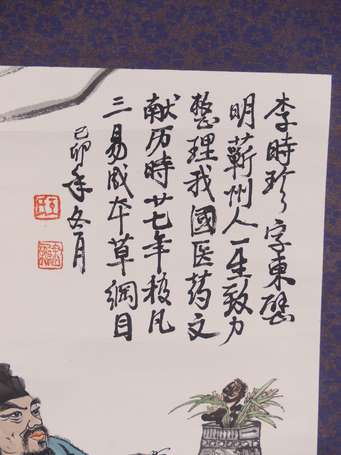 李時珍字東壁
明蘄州人一生致力
整理我國医药文
献历時廿七年稿凡
三易成本草綱目
己卯年冬月